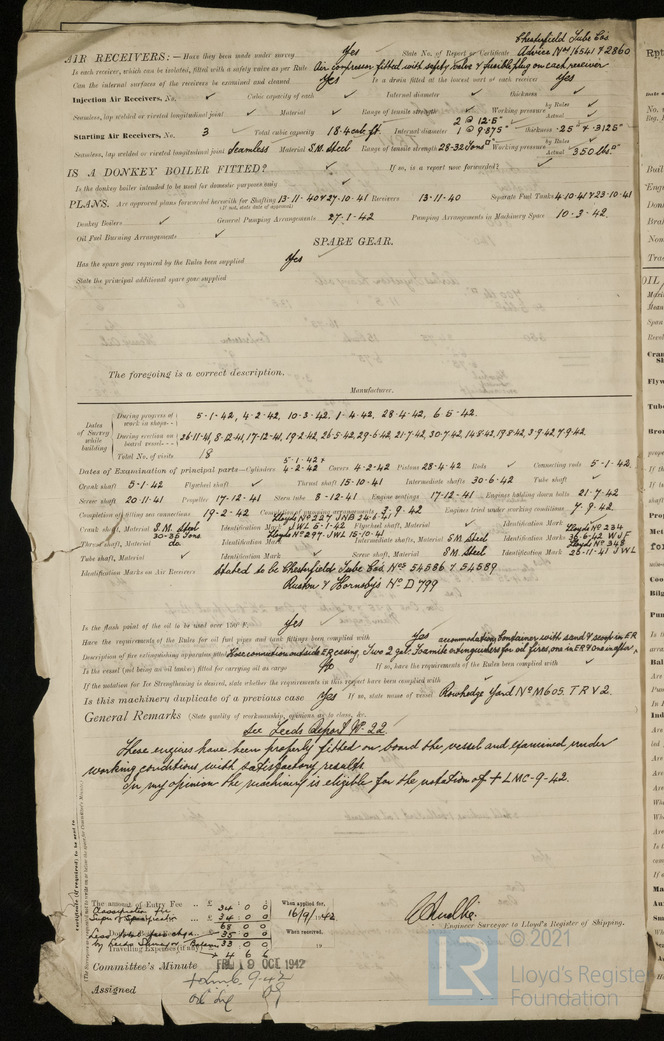 Chesterfield Tube Co's
AIR RECEIVERS:—Have they been made under survey Yes State No. of Report or Certificate Advice Nos 16541 & 2860
Is each receiver, which can be isolated, fitted with a safety valve as per Rule Air compressor fitted with safety valve & fusible plug on each receiver
Can the internal surfaces of the receivers be examined and cleaned Yes Is a drain fitted at the lowest part of each receiver yes
Injection Air Receivers, No. ✓ Cubic capacity of each ✓ Internal diameter ✓ thickness ✓
Seamless, lap welded or riveted longitudinal joint ✓ Material ✓ Range of tensile strength ✓ Working pressure by Rules ✓ Actual ✓
Starting Air Receivers, No. 3 Total cubic capacity 18.4 cub. ft. Internal diameter 2 @ 12.5" 1 @ 9.875" thickness .25" & .3125"
Seamless, lap welded or riveted longitudinal joint Seamless Material S.M. Steel Range of tensile strength 28-32 Tons □" Working pressure by Rules ✓ Actual 350 lbs. □"
IS A DONKEY BOILER FITTED? ✓ If so, is a report now forwarded? ✓
Is the donkey boiler intended to be used for domestic purposes only ✓
PLANS. Are approved plans forwarded herewith for Shafting 13-11-40 & 27-10-41 Receivers 13-11-40 Separate Fuel Tanks 4-10-41 & 23-10-41
(If not, state date of approval)
Donkey Boilers ✓ General Pumping Arrangements 27-1-42 Pumping Arrangements in Machinery Space 10-3-42
Oil Fuel Burning Arrangements ✓
SPARE GEAR.
Has the spare gear required by the Rules been supplied Yes
State the principal additional spare gear supplied
The foregoing is a correct description.
Manufacturer.
Dates of Survey while building
During progress of work in shops-- 5-1-42, 4-2-42, 10-3-42, 1-4-42, 28-4-42, 6-5-42.
During erection on board vessel--- 26-11-41, 8-12-41, 17-12-41, 19-2-42, 26-5-42, 29-6-42, 21-7-42, 30-7-42, 14-8-42, 19-8-42, 3-9-42, 7-9-42.
Total No. of visits 18
Dates of Examination of principal parts—Cylinders 5-1-42 & 4-2-42 Covers 4-2-42 Pistons 28-4-42 Rods ✓ Connecting rods 5-1-42.
Crank shaft 5-1-42 Flywheel shaft ✓ Thrust shaft 15-10-41 Intermediate shafts 30-6-42 Tube shaft ✓
Screw shaft 20-11-41 Propeller 17-12-41 Stern tube 8-12-41 Engine seatings 17-12-41 Engines holding down bolts 21-7-42
Completion of fitting sea connections 19-2-42 Completion of pumping arrangements 7-9-42 Engines tried under working conditions 7-9-42
Crank shaft, Material S.M. Steel 30-35 Tons Identification Mark Flywheel shaft, Material ✓ Identification Mark ✓
Thrust shaft, Material do Identification Mark Lloyds No 297 JWL 15-10-41 Intermediate shafts, Material S.M. Steel Identification Marks Lloyds No 234 WJF
Tube shaft, Material ✓ Identification Mark ✓ Screw shaft, Material S.M. Steel Identification Mark Lloyds No 348 JWL
Identification Marks on Air Receivers Stated to be Chesterfield Tube Co's Nos 54586 & 54589
Ruston & Hornsby's No D799
Is the flash point of the oil to be used over 150° F. Yes
Have the requirements of the Rules for oil fuel pipes and tank fittings been complied with Yes accommodation. Container with sand & scoop in ER
Description of fire extinguishing apparatus fitted Hose connection outside ER casing, Two 2 gal. Foamite extinguishers for oil fires, one in ER & one in after
Is the vessel (not being an oil tanker) fitted for carrying oil as cargo No If so, have the requirements of the Rules been complied with ✓
If the notation for Ice Strengthening is desired, state whether the requirements in this respect have been complied with ✓
Is this machinery duplicate of a previous case Yes If so, state name of vessel Rowhedge Yard No M605. TRV2.
General Remarks (State quality of workmanship, opinions as to class, &c.
See Leeds Report No. 22
These engines have been properly fitted on board the vessel and examined under
working conditions with satisfactory results
In my opinion the machinery is eligible for the notation of + LMC-9-42.
The amount of Entry Fee .. £ 34 : 0 : 0 When applied for,
34 : 0 : 0 16/9/1942
68 : 0 : 0
35 : 0 : 0 When received,
33 : 0 : 0
Travelling Expenses (if any) £ 4 : 6 : 6 19
Engineer Surveyor to Lloyd's Register of Shipping.
Committee's Minute FRI 9 OCT 1942
Assigned + LMC 9-42
Oil Eng
© 2021
LR Lloyd's Register
Foundation